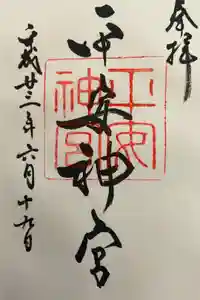 奉拝
平安神宮
平安神宮
平成廿三年六月十九日